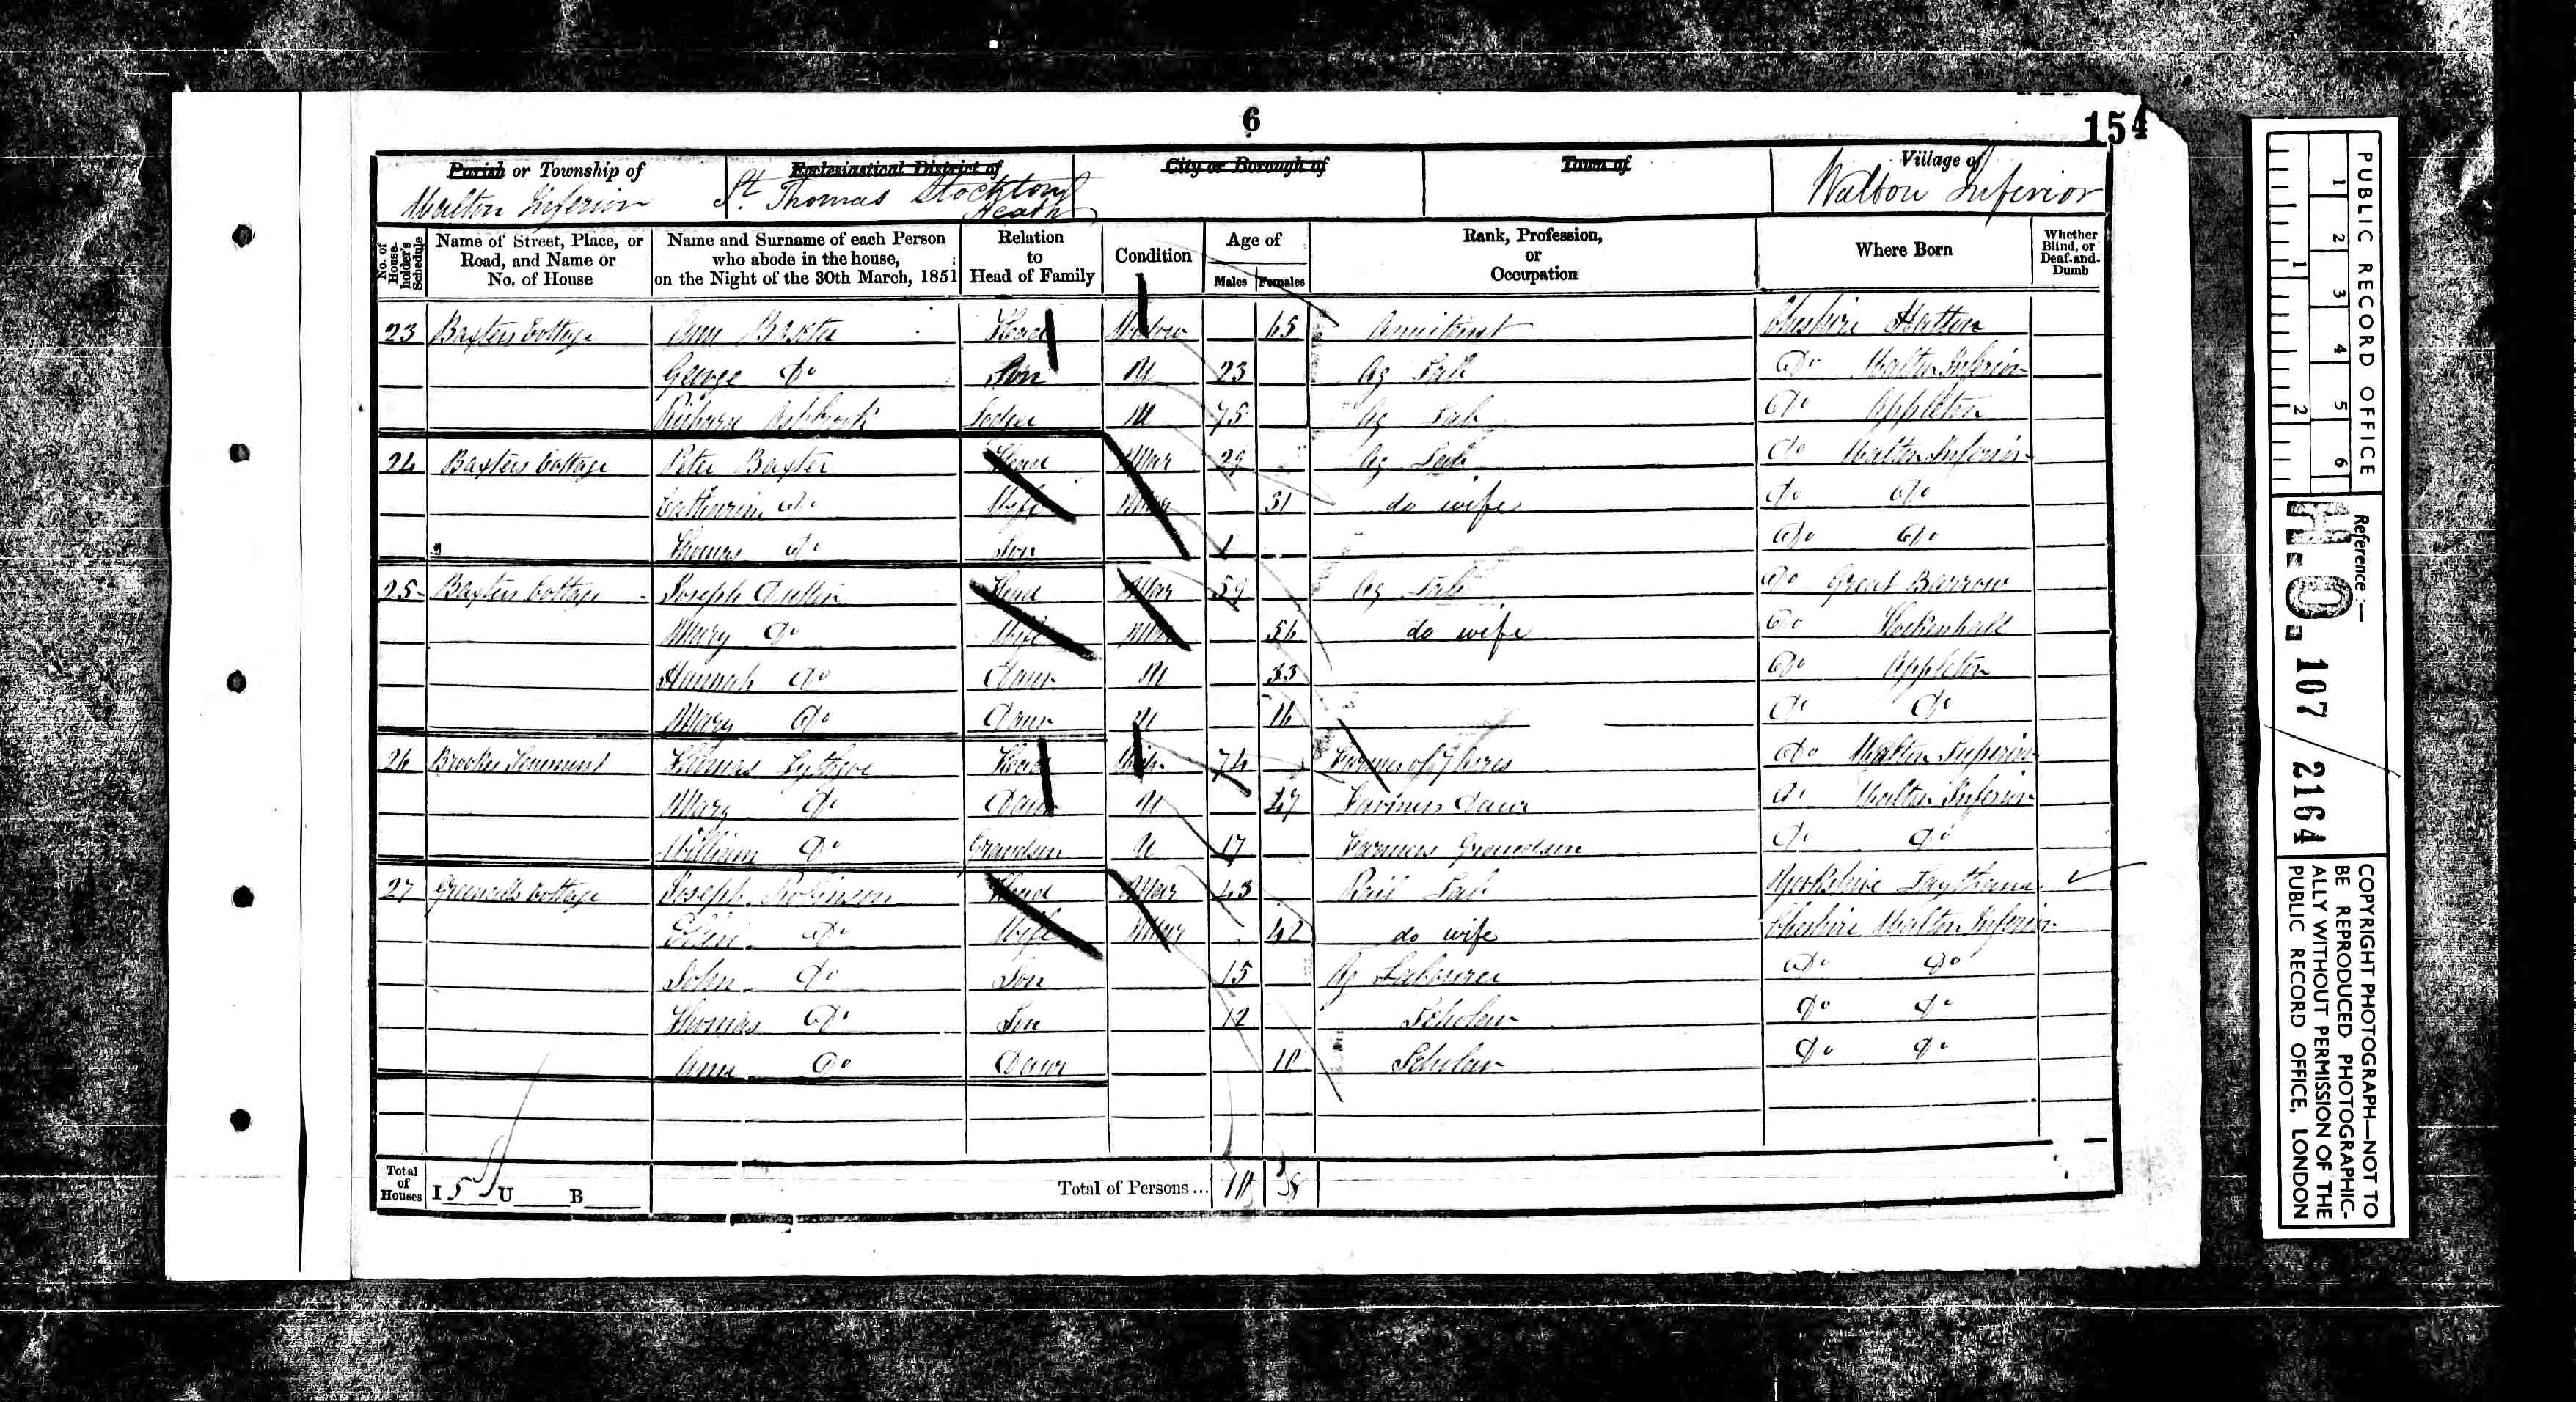 6
154
Parish or Township of
Walton Inferior
Ecclesiastical District of
St. Thomas Stockton Heath
City or Borough of
Town of
Village of
Walton Inferior
No. of House-holder's Schedule
Name of Street, Place, or Road, and Name or No. of House
Name and Surname of each Person who abode in the house, on the Night of the 30th March, 1851
Relation to Head of Family
Condition
Age of
Males Females
Rank, Profession, or Occupation
Where Born
Whether Blind, or Deaf-and-Dumb
23 Baxters Cottage Ann Baxter Head Widow 65 Annuitant Cheshire Hatton
George Do Son U 23 Ag Lab Do Walton Inferior
Richard Lodger U 75 Ag Lab Do Appleton
24 Baxters Cottage Peter Baxter Head Mar 29 Ag Lab Do Walton Inferior
Catherine Do Wife Mar 31 do wife Do Do
Thomas Do Son 1 Do Do
25 Baxters Cottage Joseph Head Mar 59 Ag Lab Do Great Barrow
Mary Do Wife Mar 56 do wife Do
Hannah Do Daur U 33 Do Appleton
Mary Do Daur U 16 Do Do
26 Thomas Lythgoe Head 74 Farmer of 7 Acres Do Walton Superior
Mary Do Daur U 47 Farmers Daur Do Walton Inferior
William Do Grandson U 17 Farmers Grandson Do Do
27 Greenalls Cottage Joseph Robinson Head Mar 43 Rail Lab Yorkshire
Ellen Do Wife Mar 42 do wife Cheshire Walton Inferior
John Do Son 15 Ag Labourer Do Do
Thomas Do Son 12 Scholar Do Do
Ann Do Daur 10 Scholar Do Do
Total of Houses I 5 U B Total of Persons... 10 8
PUBLIC RECORD OFFICE
1 2 3 4 5 6
1 2
Reference :—
H.O. 107 2164
COPYRIGHT PHOTOGRAPH—NOT TO
BE REPRODUCED PHOTOGRAPHIC-
ALLY WITHOUT PERMISSION OF THE
PUBLIC RECORD OFFICE, LONDON